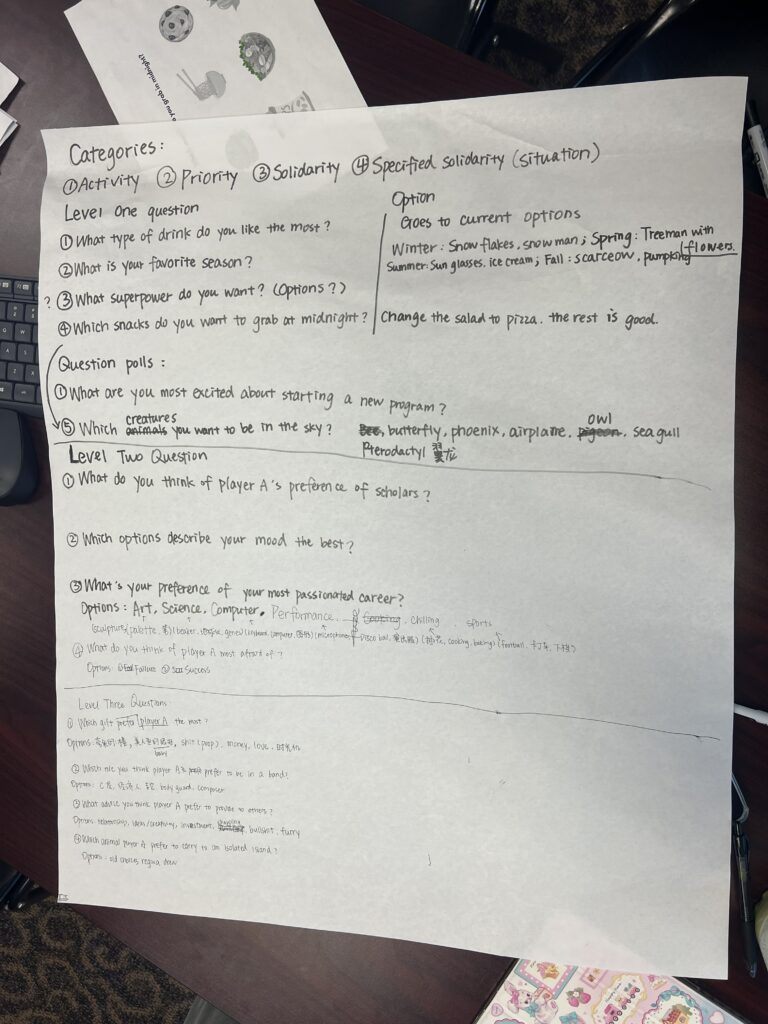 you grab in midnight?
Categories:
①Activity ②Priority ③Solidarity ④Specified solidarity (situation)
Level One question
①What type of drink do you like the most?
②What is your favorite season?
? ③What superpower do you want? (Options?)
④Which snacks do you want to grab at midnight?
Option
Goes to current options
Winter: Snow flakes, snow man; Spring: Treeman with flowers.
Summer: Sun glasses. ice cream; Fall: scarceow, pumpking
Change the salad to pizza. the rest is good.
Question polls:
①What are you most excited about starting a new program?
⑤Which animals creatures you want to be in the sky? Bee, butterfly, phoenix, airplane, pigeon owl, seagull
Pterodactyl 翼龙
Level Two Question
①What do you think of player A's preference of scholars?
②Which options describe your mood the best?
③What's your preference of your most passionated career?
Options: Art, Science, Computer, Performance, Cooking, chilling, sports
(sculpture (palette, beaker, computer, (microphone, Disco ball, cooking, baking) (football, 卡丁车, 下棋)
④What do you think of player A most afraid of?
Options: ①Failure ②Success
Level Three Questions
①Which gift prefer player A the most?
Options: shit (poop), money, love, 时光机
②Which role you think player A prefer to be in a band?
Options: body guard, composer
③What advice you think player A prefer to provide to others?
Options: relationship, ideas/creativity, investment, bullshit, funny
④Which animal player A prefer to carry to an isolated island?
Options: old choices, regina, drew